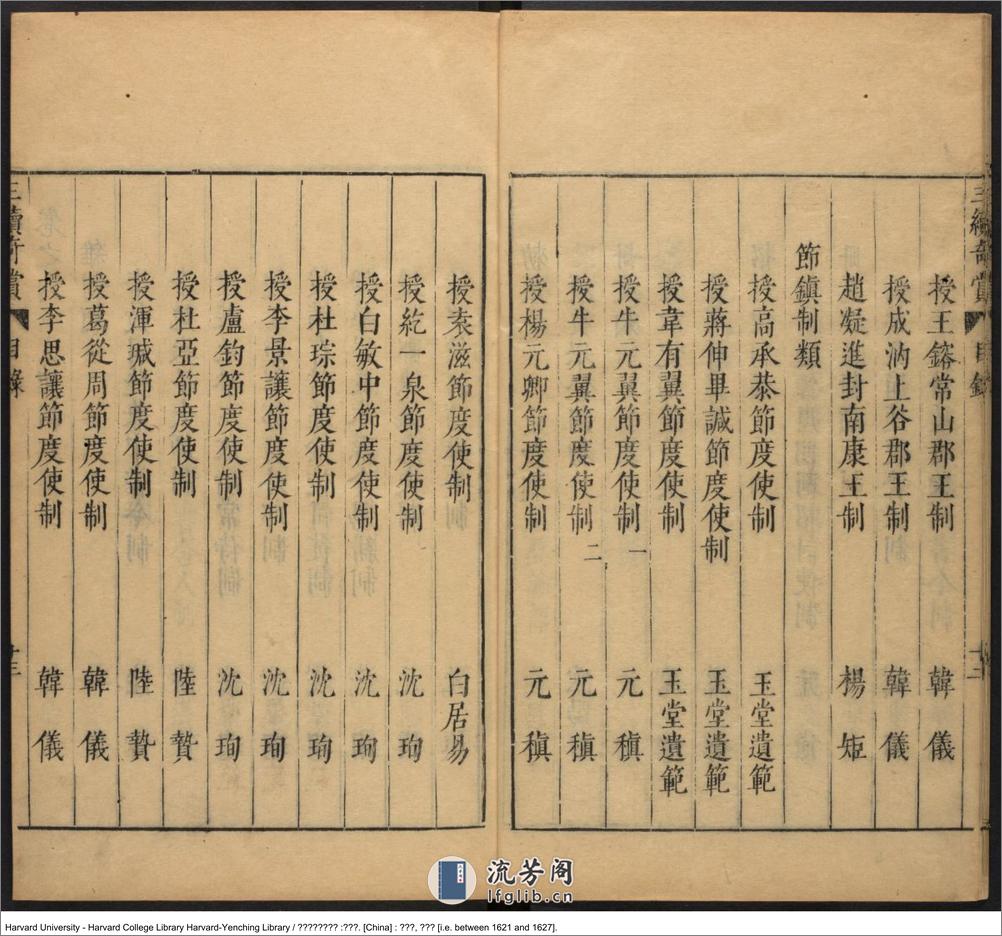 三續奇賞 目錄 十二
授王鎔常山郡王制 韓儀
授成汭上谷郡王制 韓儀
趙凝進封南康王制 楊姖
節鎮制類
授高承恭節度使制 玉堂遺範
授蔣伸畢諴節度使制 玉堂遺範
授韋有翼節度使制 玉堂遺範
授牛元翼節度使制一 元稹
授牛元翼節度使制二 元稹
授楊元卿節度使制 元稹
授袁滋節度使制 白居易
授紇一泉節度使制 沈珣
授白敏中節度使制 沈珣
授杜琮節度使制 沈珣
授李景讓節度使制 沈珣
授盧鈞節度使制 沈珣
授杜亞節度使制 陸贄
授渾瑊節度使制 陸贄
授葛從周節度使制 韓儀
授李思讓節度使制 韓儀
三續奇賞 目錄 十三
流芳阁
lfglib.cn
Harvard University - Harvard College Library Harvard-Yenching Library / ???????? :???. [China] : ???, ??? [i.e. between 1621 and 1627].